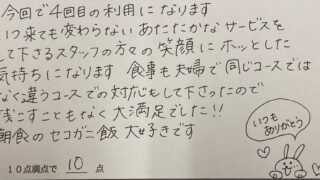 今回で4回目の利用になります
いつ来ても変わらない あたたかな サービスを
して下さるスタッフの方々の笑顔に ホッとした
気持ちになります 食事も夫婦で同じコースでは
なく違うコースでの対応もして下さったので
残こすこともなく大満足でした!!
朝食のセコガニ飯 大好きです
いつも
ありがとう
10点満点で 10 点